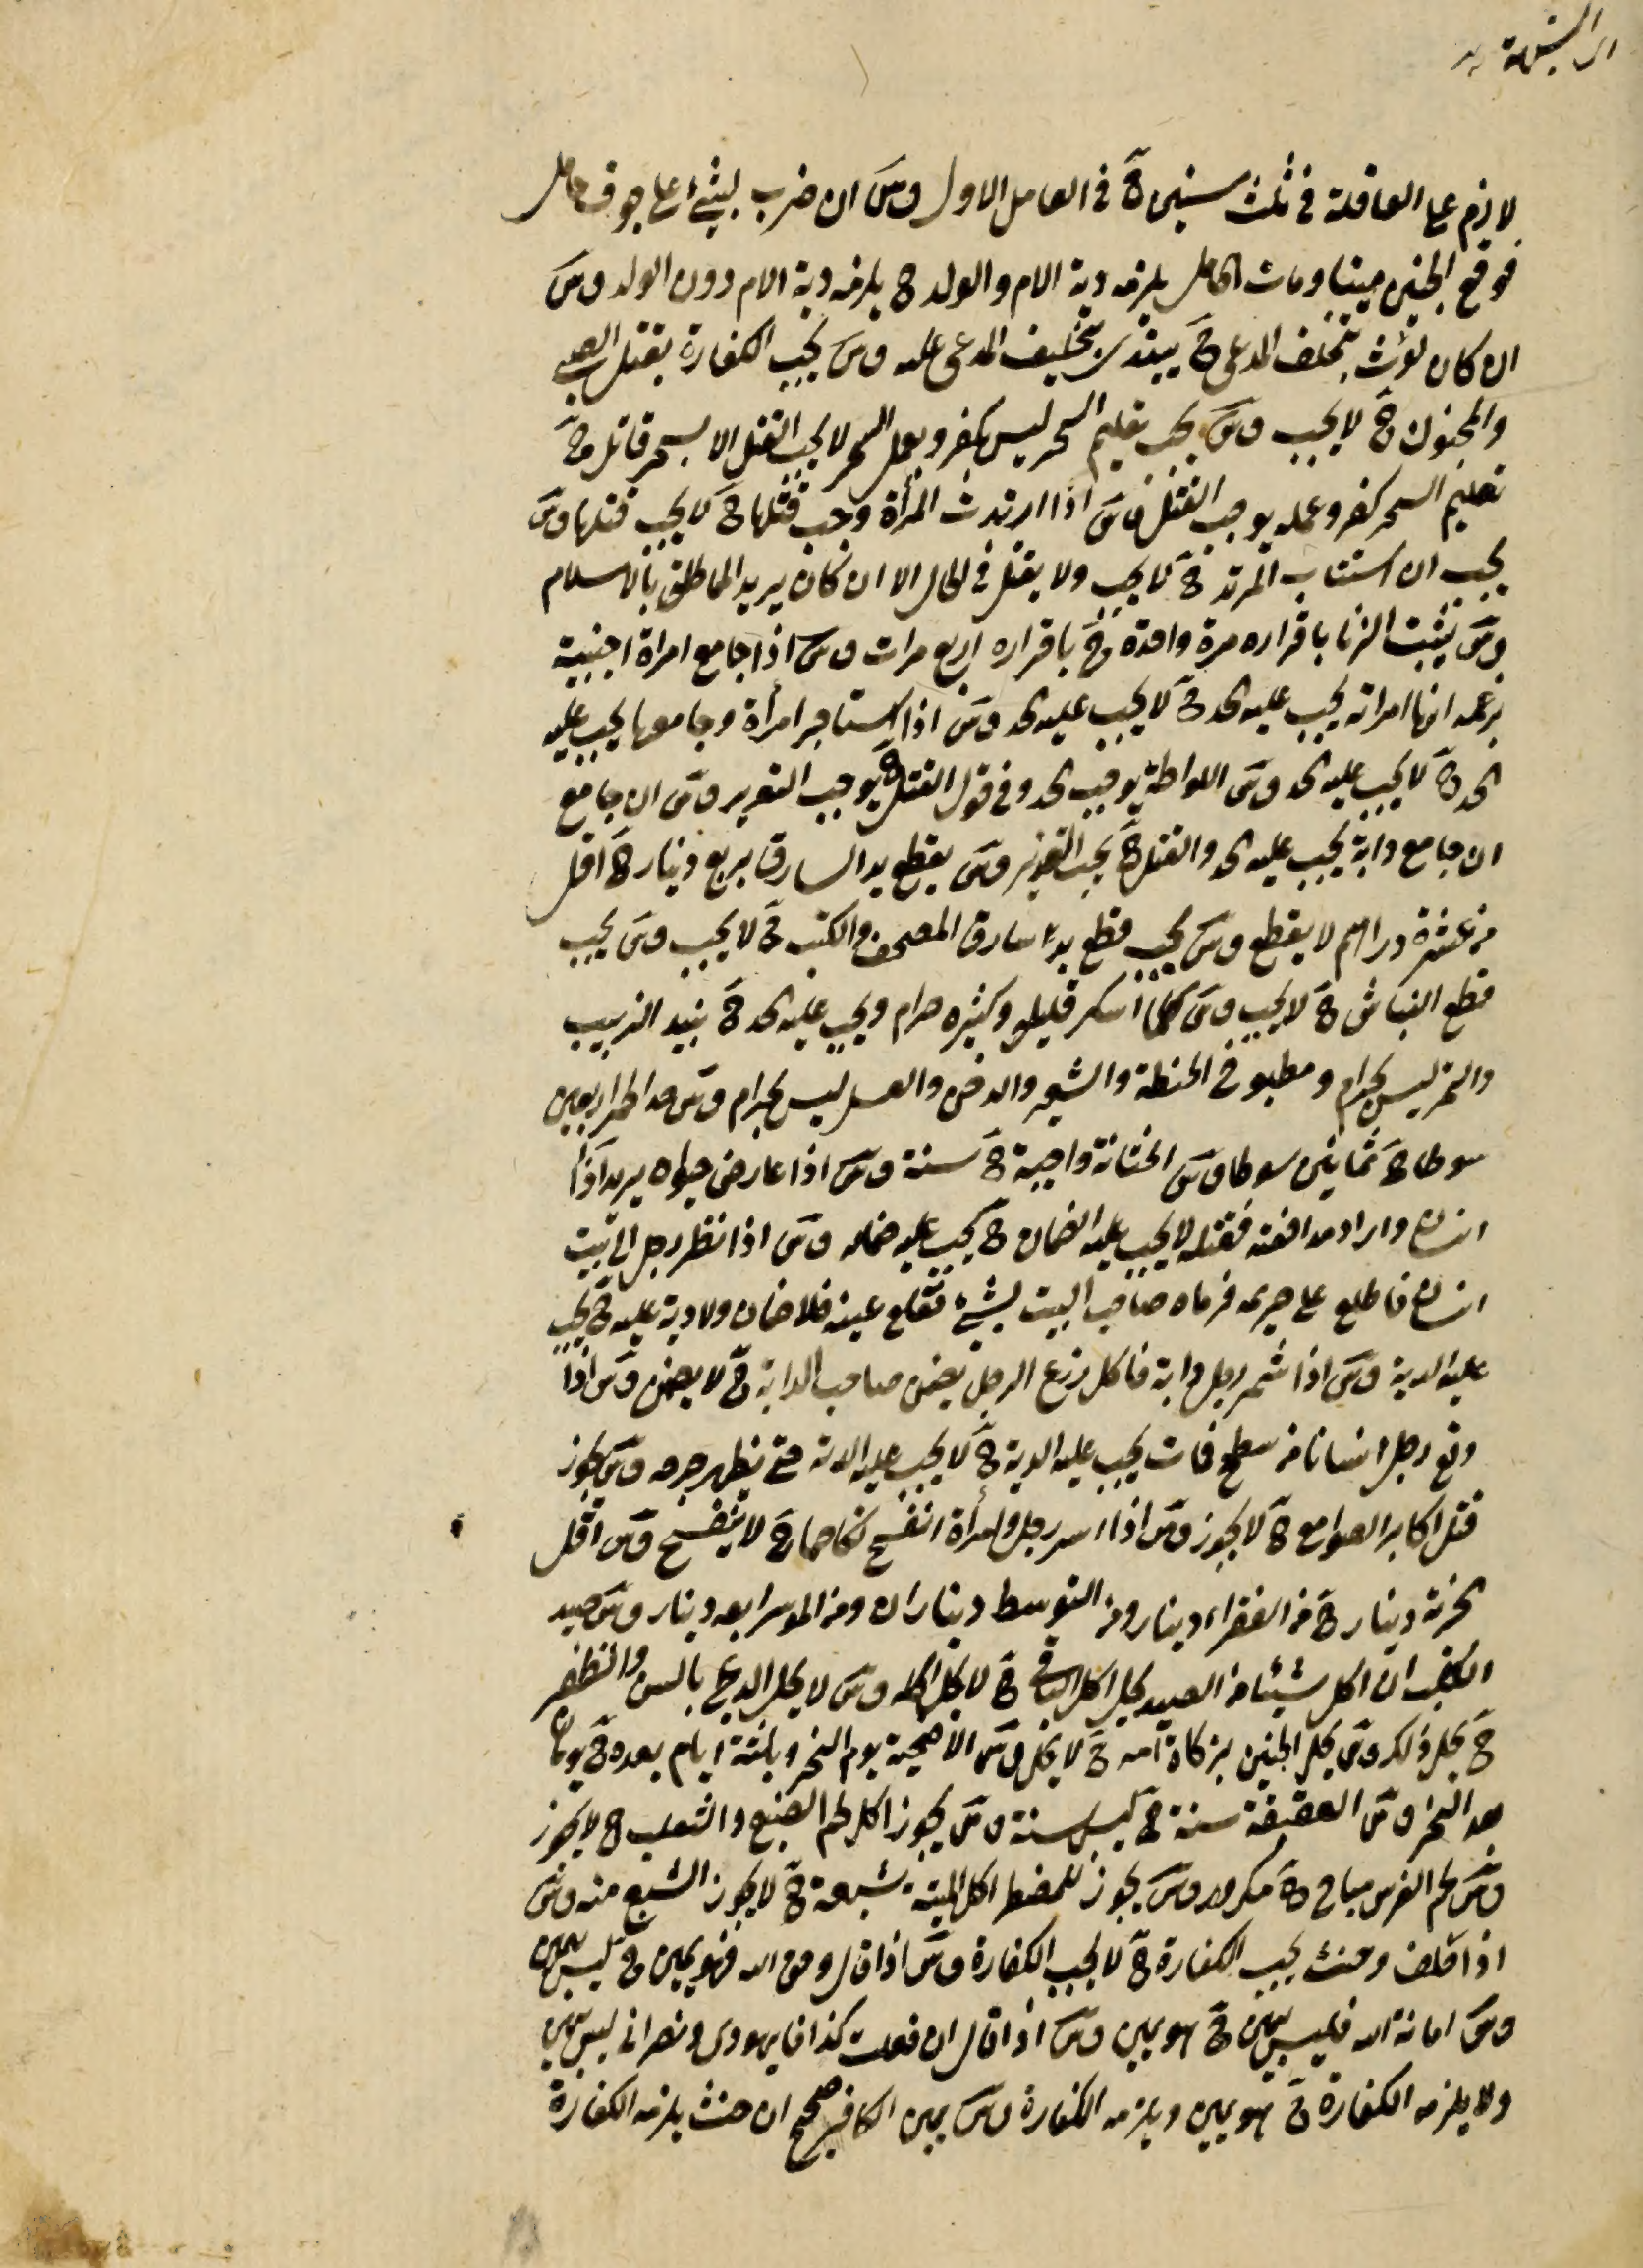 لازم على العاقلة في ثلث سنين ح في العامل الاول وش ان ضرب بشئ على جوف حامل
فوقع الجنين ميتا ومات الحامل يلزمه دية الام والولد ح يلزمه دية الام دون الولد وش
ان كان لوث يحلف المدعي ح يبتدي بتحليف المدعى عليه وش يجب الكفارة بقتل الصبي
والمجنون ح لا يجب وش يجب تعليم السحر ليس بكفر وبعمل السحر لا يجب القتل الا بسحر قاتل ح
تعليم السحر كفر وعمله يوجب القتل وش اذا ارتدت المرأة وجب قتلها ح لا يجب قتلها وش
يجب ان استتاب المرتد ح لا يجب ولا يقتل في الحال الا ان كان يريد بالاسلام
وش يثبت الزنا باقراره مرة واحدة ح باقراره اربع مرات وش اذا جامع امراة اجنبية
بزعمه انها امراته يجب عليه الحد ح لا يجب عليه الحد وش اذا استاجر امرأة وجامعها يجب عليه
الحد ح لا يجب عليه الحد وش اللواطة يوجب الحد وفي قول القتل ح يوجب التعزير وش ان جامع
ان جامع دابة يجب عليه الحد والقتل ح يجب التعزير وش يقطع يد السارق بربع دينار ح اقل
من عشرة دراهم لا يقطع وش يجب قطع يد سارق المصحف والكتب ح لا يجب وش يجب
قطع النباش ح لا يجب وش كلما اسكر قليله وكثيره حرام ويجب عليه الحد ح نبيد الزبيب
والتمر ليس بحرام ومطبوخ الحنطة والشعير والدخن والعسل ليس بحرام وش حد الخمر اربعين
سوطا ح ثمانين سوطا وش الختانة واجبة ح سنة وش اذا عارض حيوان يريد اذا
انسان واراد مدافعته فقتله لا يجب عليه الضمان ح يجب عليه ضمانه وش اذا نظر رجل الى بيت
انسان فاطلع على حريمه فرماه صاحب البيت بشئ فقلع عينه فلا ضمان ولا دية عليه ح يجب
عليه الدية وش اذا رجل دابة فاكل زرع الرجل يضمن صاحب الدابة ح لا يضمن وش اذا
وقع رجل انسانا من سطح فمات يجب عليه الدية ح لا يجب عليه الدية حتى يظهر جرحه وش يجوز
قتل اكابر الصوامع ح لا يجوز وش اذا اسر رجل وامرأة انفسخ نكاحهما ح لا ينفسخ وش اقل
الجزية دينار ح من الفقراء دينار ومن التوسط ديناران ومن الموسر اربعة دينار وش صيد
الكلب ان اكل شيئا من الصيد يحل اكل الباقي ح لا يحل اكله وش لا يحل الذبح بالسن والظفر
ح يحل ذلك وش يحل الجنين بزكاة امه ح لا يحل وش الاضحية يوم النحر وثلثة ايام بعده ح يومان
بعد النحر وش العقيقة سنة ح ليس سنة وش يجوز اكل لحم الضبع والثعلب ح لا يجوز
وش لحم الفرس مباح ح مكروه وش يجوز للمضطر اكل الميتة شبعة ح لا يجوز الشبع منه وش
اذا حلف وحنث يجب الكفارة ح لا يجب الكفارة وش اذا قال وحق الله فهو يمين ح ليس بيمين
وش امانة الله فليس بيمين ح هو يمين وش اذا قال ان فعلت كذا فانا يهودي ونصراني ليس بيمين
ولا يلزمه الكفارة ح هو يمين ويلزمه الكفارة وش يمين الكافر صحيح ان حنث يلزمه الكفارة